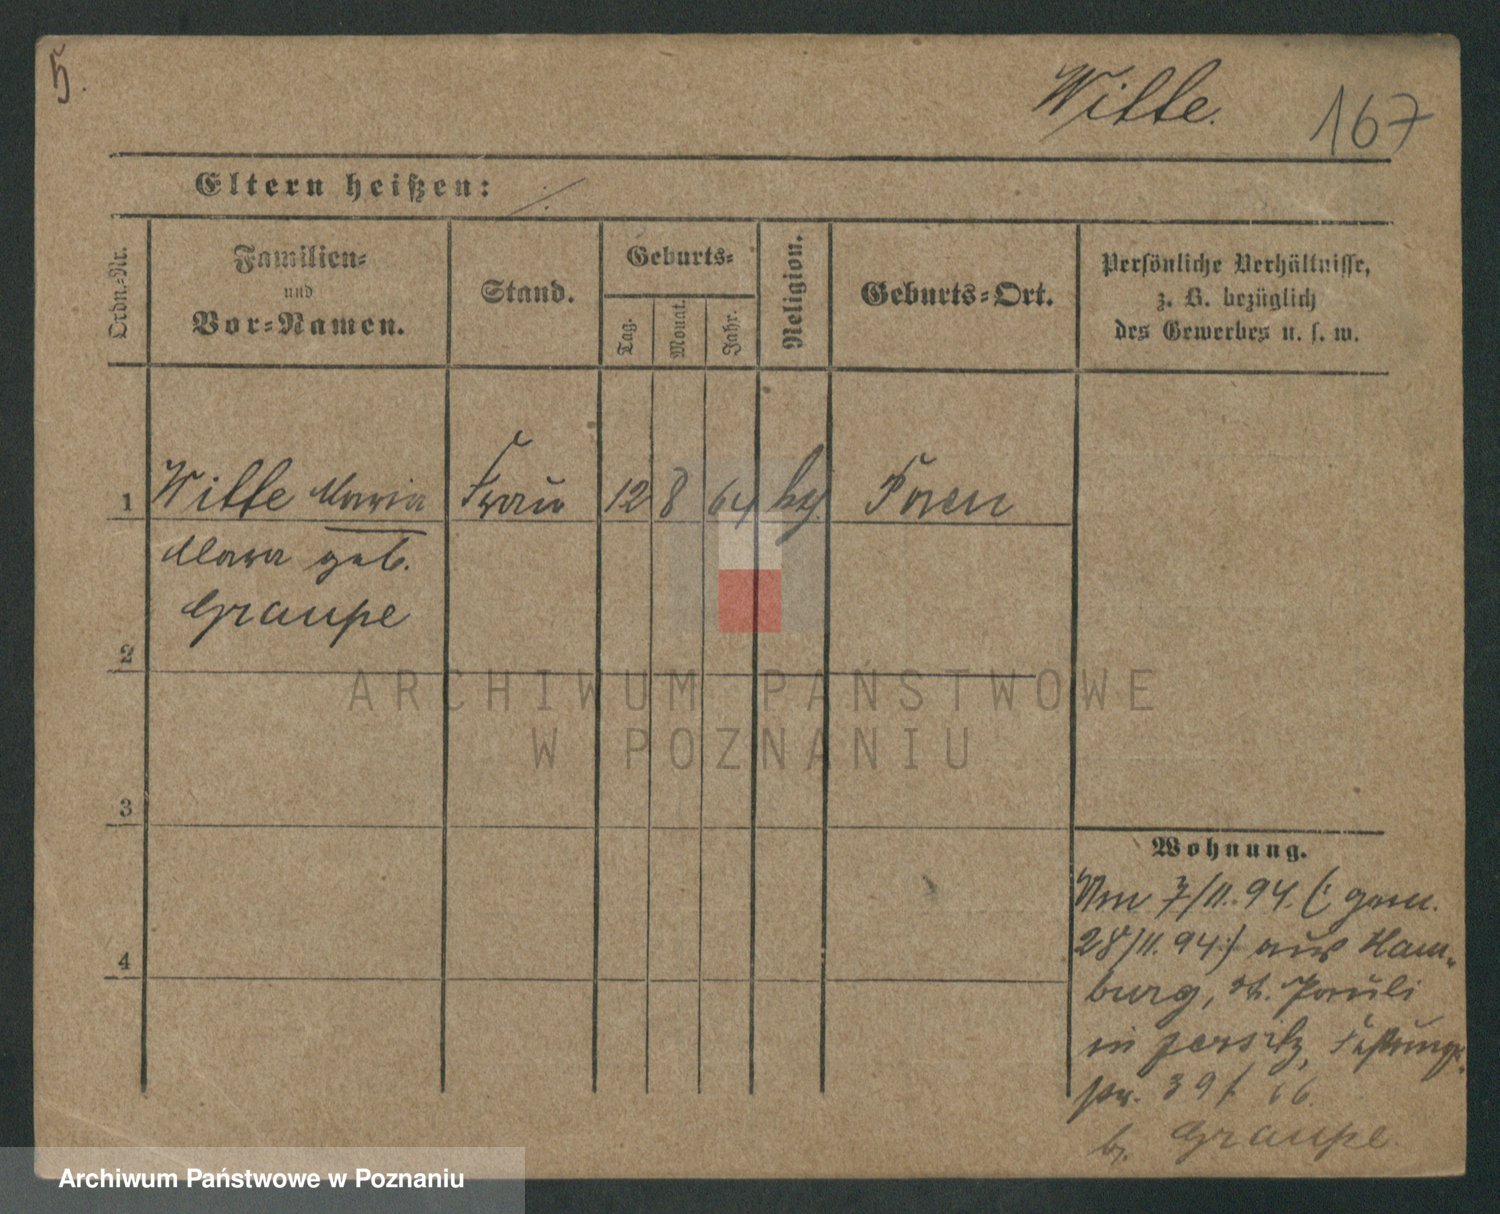 5.
Witte.
167
Eltern heißen: ./.
Ordn.-Nr.
Familien-
und
Vor-Namen.
Stand.
Geburts-
Tag.
Monat.
Jahr.
Religion.
Geburts-Ort.
Persönliche Verhältnisse,
z. B. bezüglich
des Gewerbes u. s. w.
1 Witte Maria Frau 12 8 64 Posen
Clara geb.
Graupe
2
3
4
Wohnung.
Am 7/11. 94. (: gem.
28/11. 94 :) aus Ham-
burg, St. Pauli
in Jersitz,
str. 39
b. Graupe.
ARCHIWUM PAŃSTWOWE
W POZNANIU
Archiwum Państwowe w Poznaniu